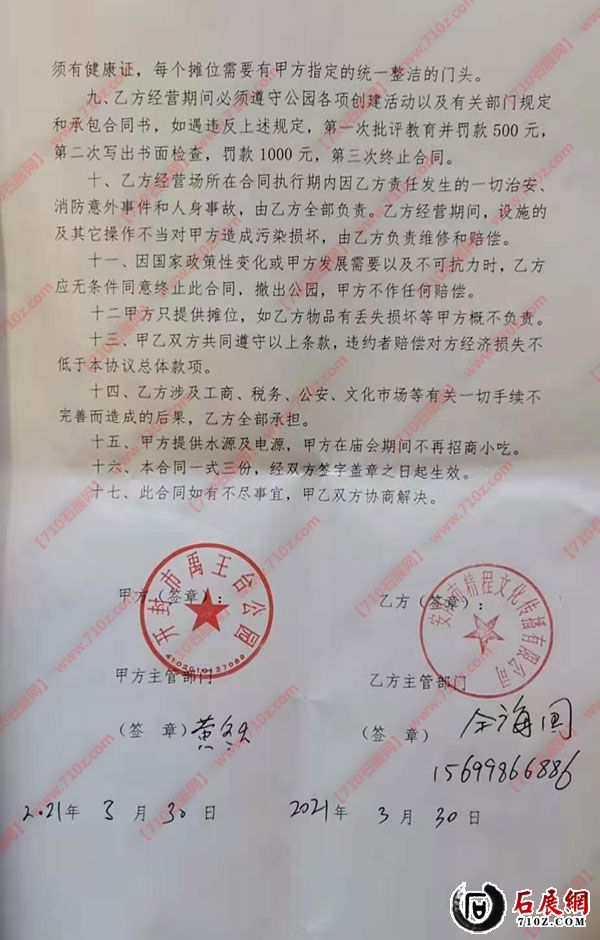 须有健康证，每个摊位需要有甲方指定的统一整洁的门头。
九、乙方经营期间必须遵守公园各项创建活动以及有关部门规定
和承包合同书，如遇违反上述规定，第一次批评教育并罚款 500 元，
第二次写出书面检查，罚款 1000 元，第三次终止合同。
十、乙方经营场所在合同执行期内因乙方责任发生的一切治安、
消防意外事件和人身事故，由乙方全部负责。乙方经营期间，设施的
及其它操作不当对甲方造成污染损坏，由乙方负责维修和赔偿。
十一、因国家政策性变化或甲方发展需要以及不可抗力时，乙方
应无条件同意终止此合同，撤出公园，甲方不作任何赔偿。
十二甲方只提供摊位，如乙方物品有丢失损坏等甲方概不负责。
十三、甲乙双方共同遵守以上条款，违约者赔偿对方经济损失不
低于本协议总体款项。
十四、乙方涉及工商、税务、公安、文化市场等有关一切手续不
完善而造成的后果，乙方全部承担。
十五、甲方提供水源及电源，甲方在庙会期间不再招商小吃。
十六、本合同一式三份，经双方签字盖章之日起生效。
十七、此合同如有不尽事宜，甲乙双方协商解决。
甲方（签章）：
开封市禹王台公园
4102010127089
乙方（签章）：
市精程文化传播有限公司
甲方主管部门
乙方主管部门
（签 章）黄
（签 章）海
15699866886
2021年 3 月 30 日
2021年 3 月 30 日
【710石展网】www.710z.com
石展網
710z.com